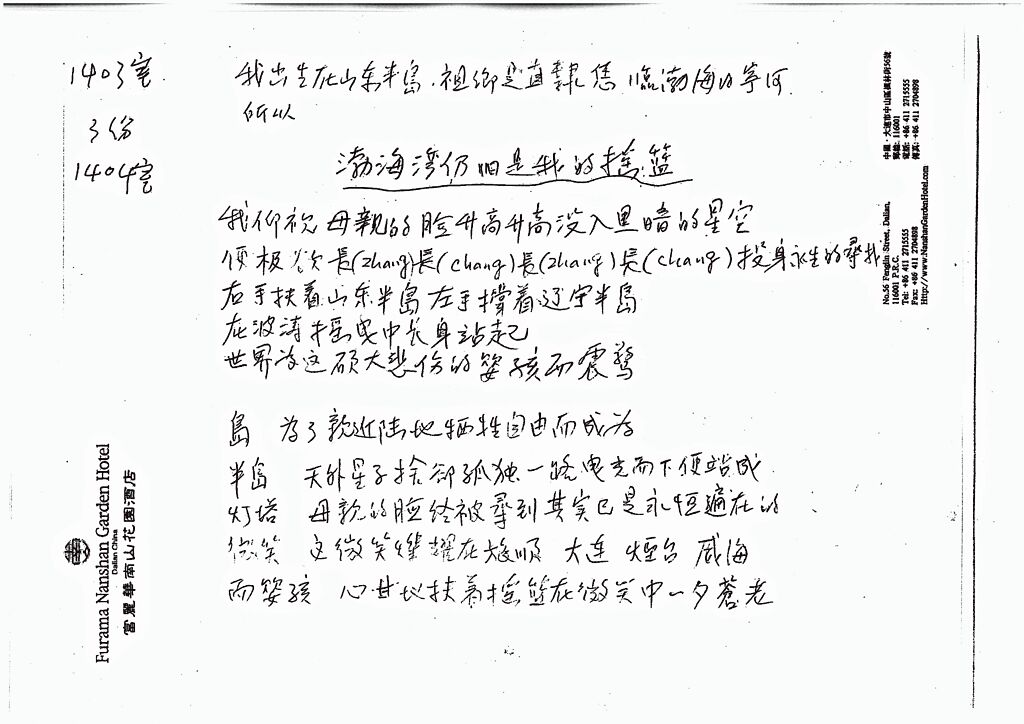 1403室
3份
1404室
我出生在山东半島.祖鄉是直隸 臨渤海的寧河
所以
渤海湾仍旧是我的搖籃
我仰視母親的脸升高升高没入黑暗的星空
便极欲長(zhang)長(chang)長(zhang)長(chang)投身永生的尋找
右手扶着山东半島左手撐着辽宁半島
在波涛摇曳中长身站起
世界为这硕大悲伤的嬰孩而震驚
島 为了親近陆地牺牲自由而成为
半島 天外星子捨卻孤独一路电光而下便站成
灯塔 母親的脸终被尋到其实已是永恒遍在的
微笑 这微笑燦耀在旅順 大连 煙台 威海
而嬰孩 心甘地扶着搖籃在微笑中一夕蒼老
Furama Nanshan Garden Hotel
Dalian China
富麗華南山花園酒店
中國·大連市中山區楓林街56號
郵編: 116001
電話: +86 411 2715555
傳真: +86 411 2704898
No.56 Fenglin Street, Dalian,
116001 P.R.C.
Tel: +86 411 2715555
Fax: +86 411 2704898
Http://www.NanshanGardenHotel.com